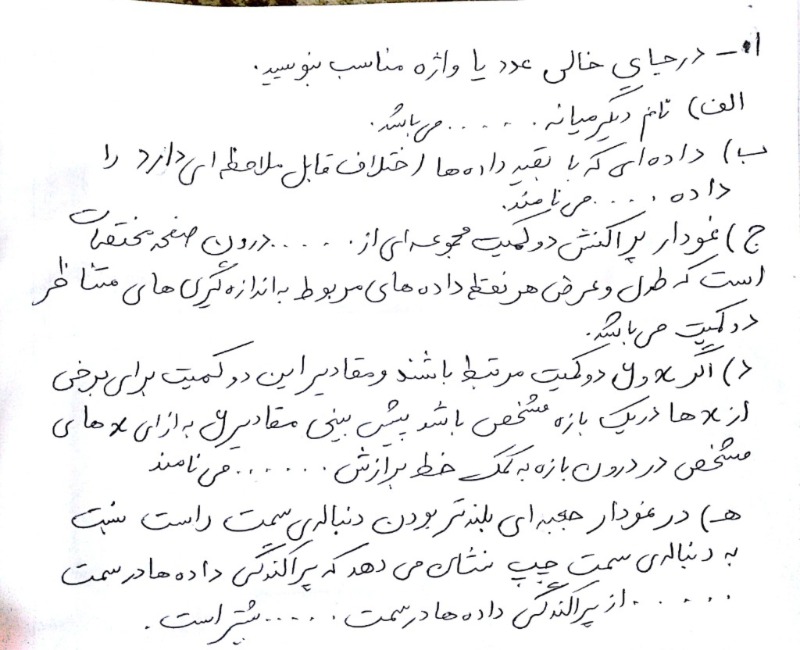 ۱۰- درجای خالی عدد یا واژه مناسب بنویسید.
الف) نام دیگر میانه ..... می باشد.
ب) داده ای که با بقیه داده ها اختلاف قابل ملاحظه ای دارد را
داده .... می نامند.
ج) نمودار پراکنش دو کمیت مجموعه ای از ..... درون صفحه مختصات
است که طول و عرض هر نقطه داده های مربوط به اندازه گیری های متناظر
دو کمیت می باشد.
د) اگر x و y دو کمیت مرتبط باشند و مقادیر این دو کمیت برای برخی
از x ها در یک بازه مشخص باشد پیش بینی مقادیر y به ازای x های
مشخص در درون بازه به کمک خط برازش ...... می نامند
هـ) در نمودار جعبه ای بلندتر بودن دنباله ی سمت راست نسبت
به دنباله ی سمت چپ نشان می دهد که پراکندگی داده ها در سمت
...... از پراکندگی داده ها در سمت ..... بیشتر است.